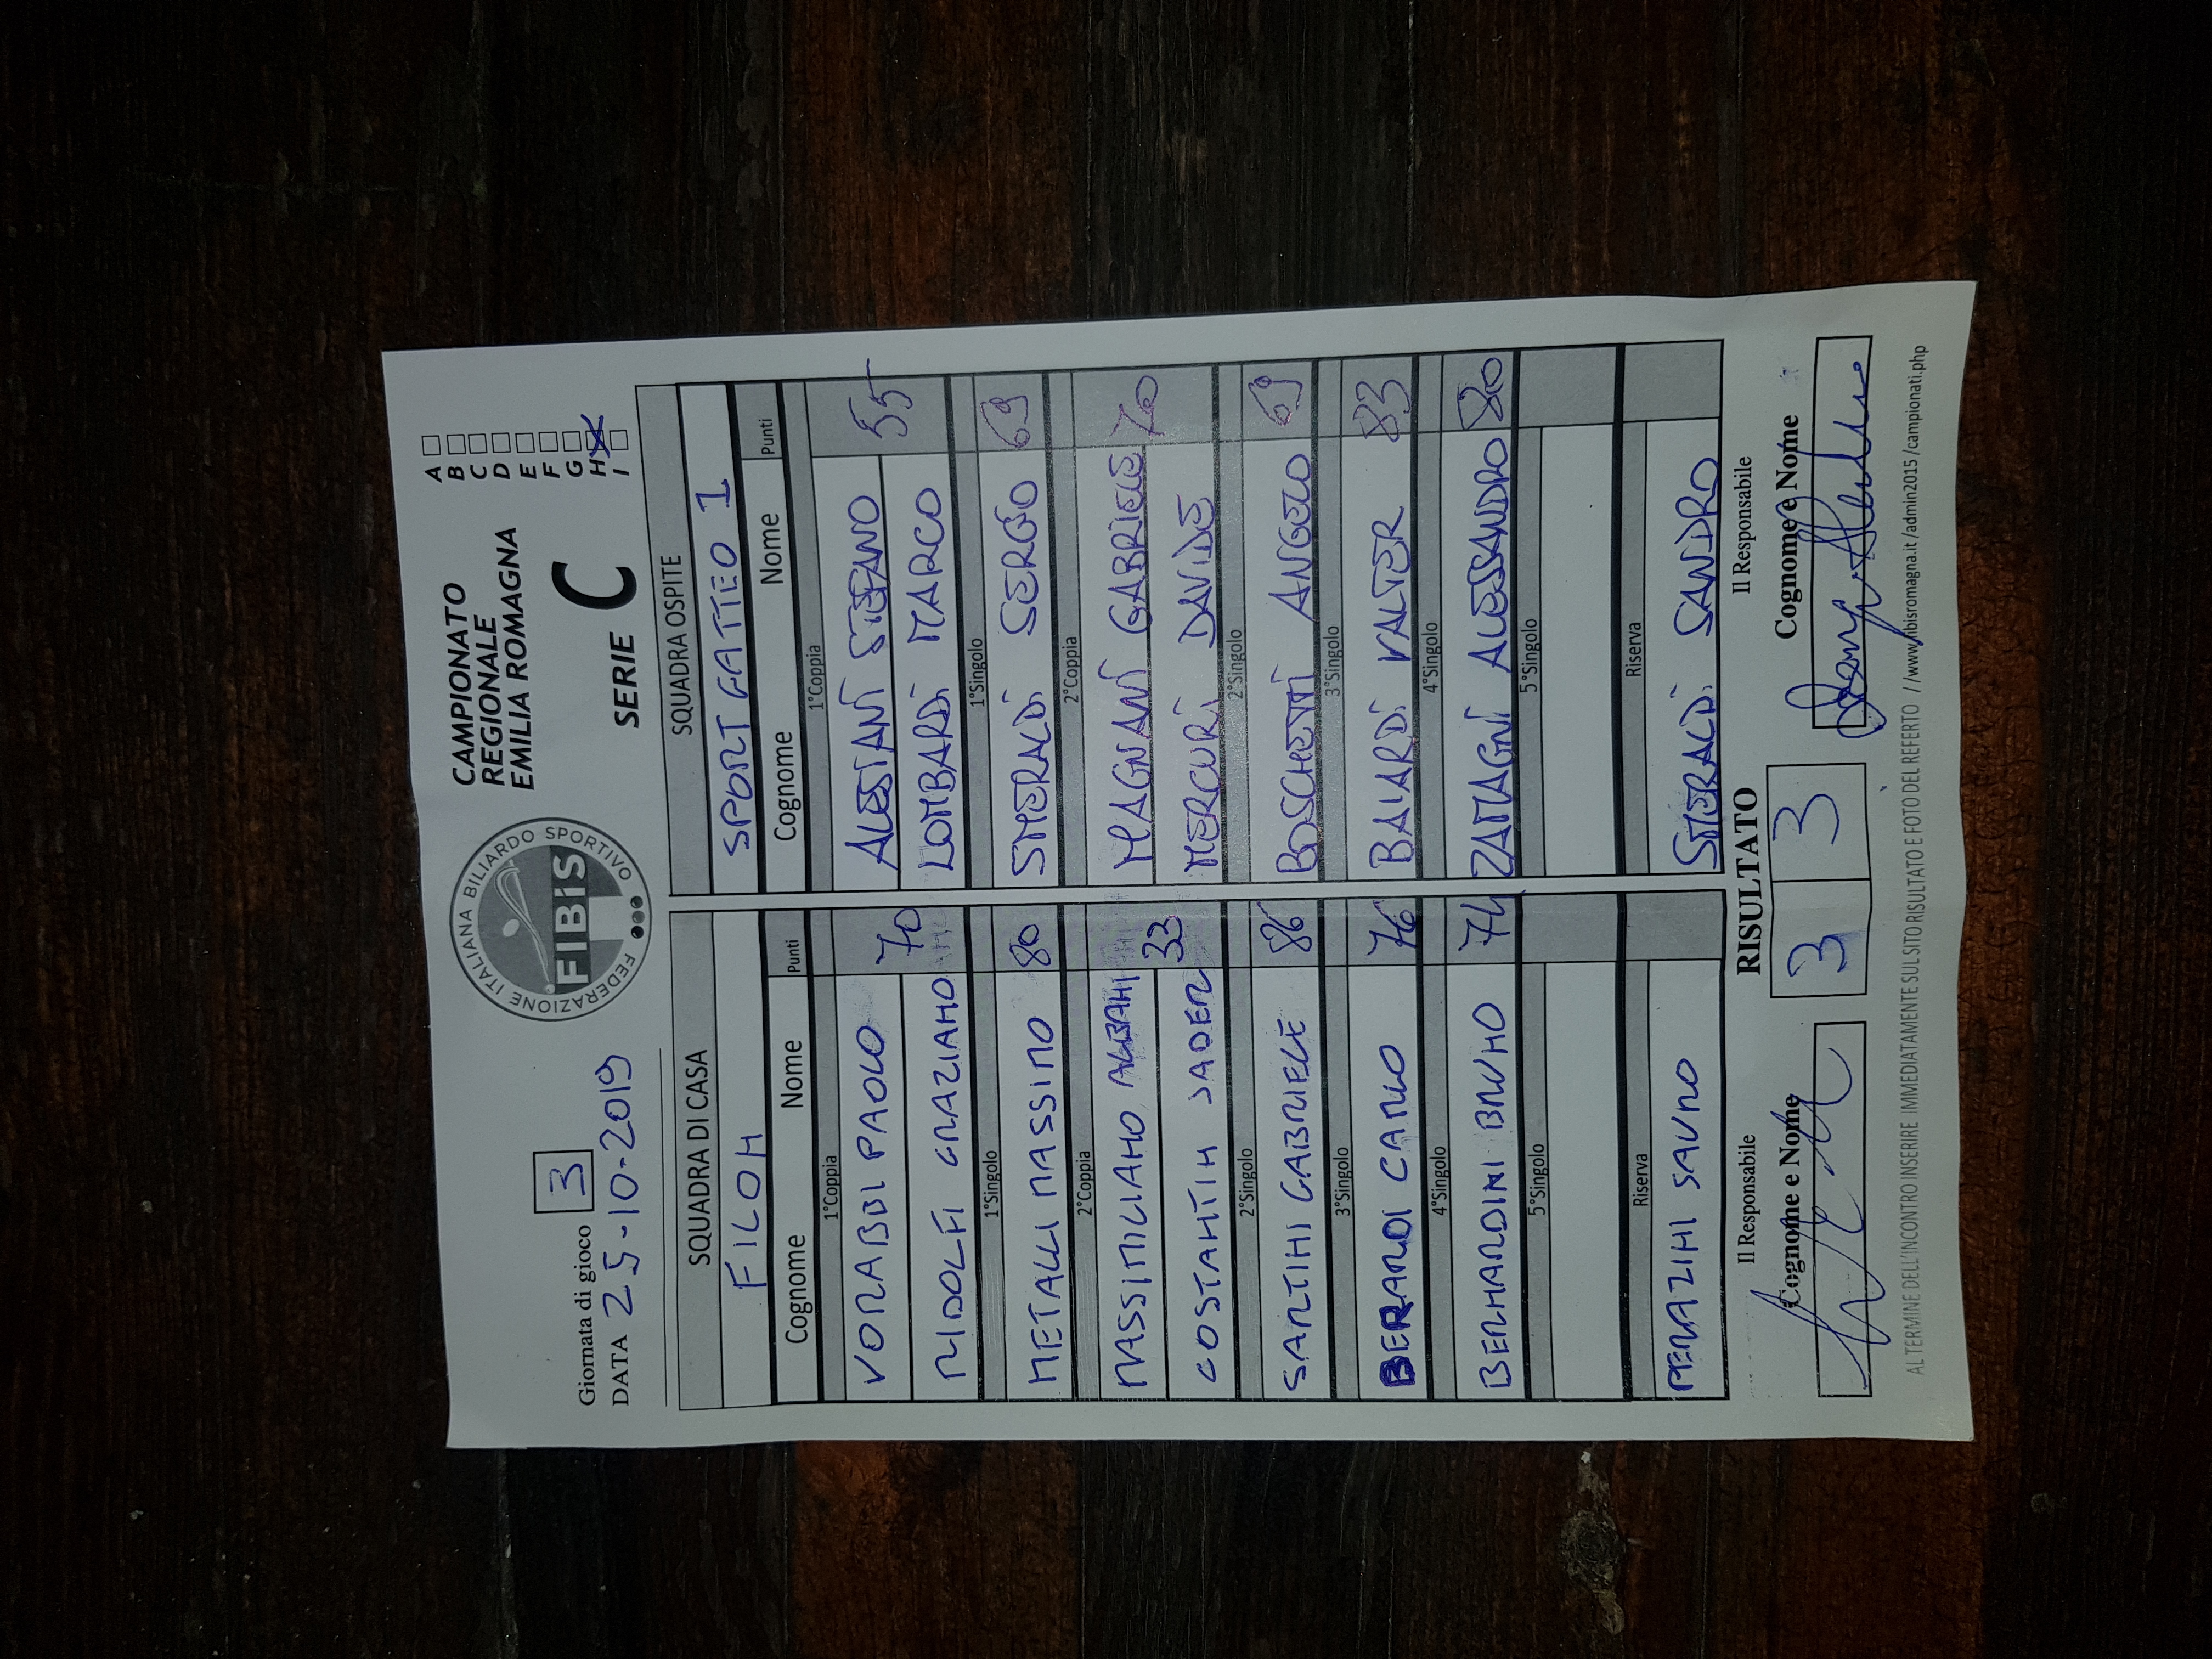 Giornata di gioco 3
DATA 25-10-2019
FEDERAZIONE ITALIANA BILIARDO SPORTIVO
FIBiS
CAMPIONATO
REGIONALE
EMILIA ROMAGNA
SERIE C
A
B
C
D
E
F
G
H X
I
SQUADRA DI CASA SQUADRA OSPITE
FILOH SPORT GATTEO 1
Cognome Nome Punti Cognome Nome Punti
1°Coppia 1°Coppia
VORABBI PAOLO 70 ALESIANI STEFANO 55
RIDOLFI GRAZIANO LOMBARDI MARCO
1°Singolo 1°Singolo
METALLI MASSIMO 80 SMERALDI SERGIO 69
2°Coppia 2°Coppia
MASSIMILIANO ALBANI 33 MAGNANI GABRIELE 70
COSTANTIN MERCURI DAVIDE
2°Singolo 2°Singolo
SANTINI GABRIELE 86 BOSCHETTI ANGELO 69
3°Singolo 3°Singolo
BERARDI CARLO 76 BAIARDI VALTER 83
4°Singolo 4°Singolo
BERNARDINI BRUNO 74 ZAMAGNI ALESSANDRO 80
5°Singolo 5°Singolo
Riserva Riserva
PERAZINI SAURO SMERALDI SANDRO
Il Responsabile RISULTATO Il Responsabile
Cognome e Nome 3 3 Cognome e Nome
AL TERMINE DELL'INCONTRO INSERIRE IMMEDIATAMENTE SUL SITO RISULTATO E FOTO DEL REFERTO //www.fibisromagna.it /admin2015 /campionati.php